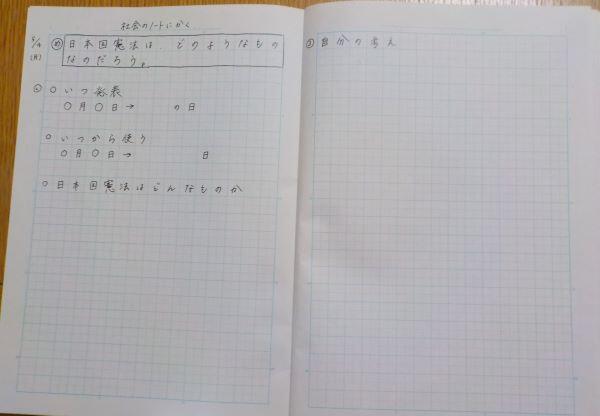 社会のノートにかく
5/4
(月)
め 日本国憲法は、どのようなもの
なのだろう。
○いつ発表
○月○日→ の日
○いつから使う
○月○日→ 日
○日本国憲法はどんなものか
自分の考え